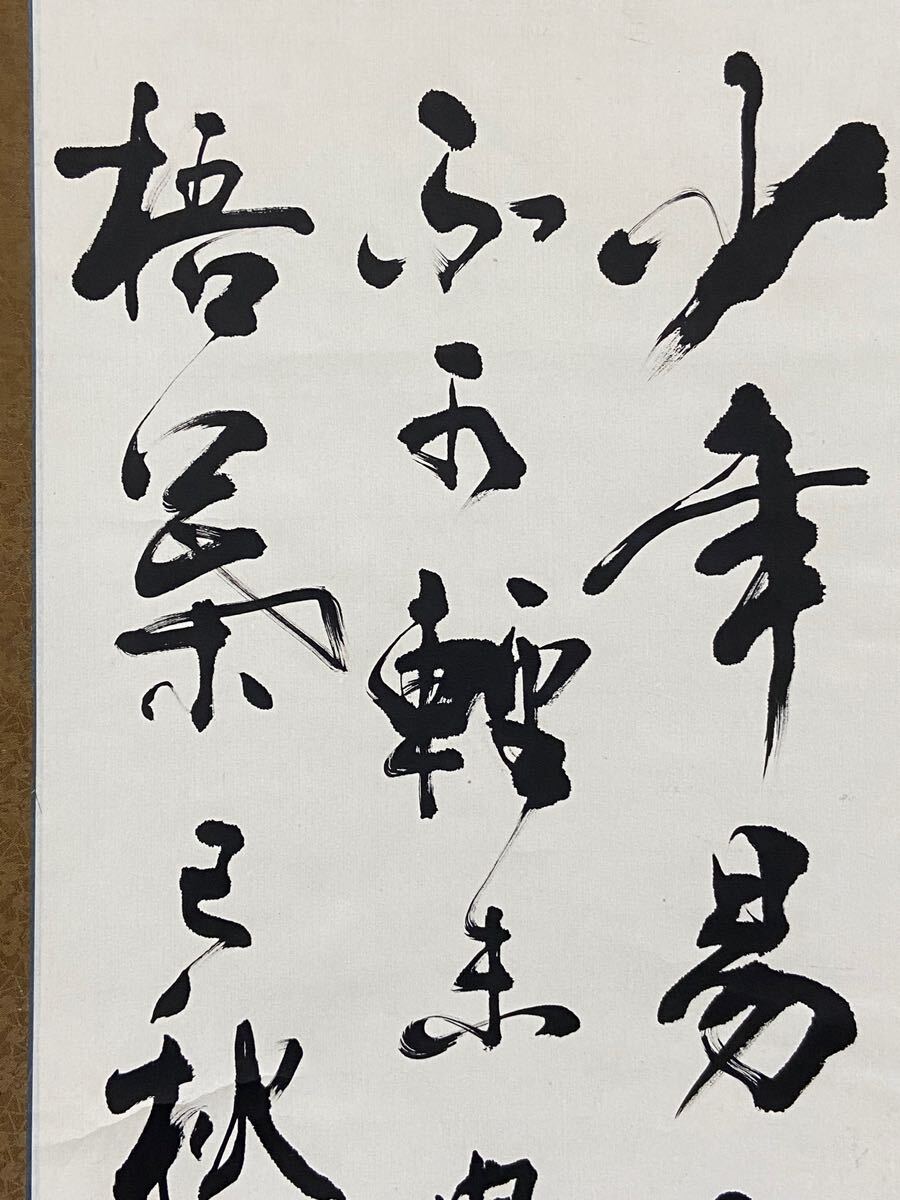 少年易
不可輕未
梧葉已秋